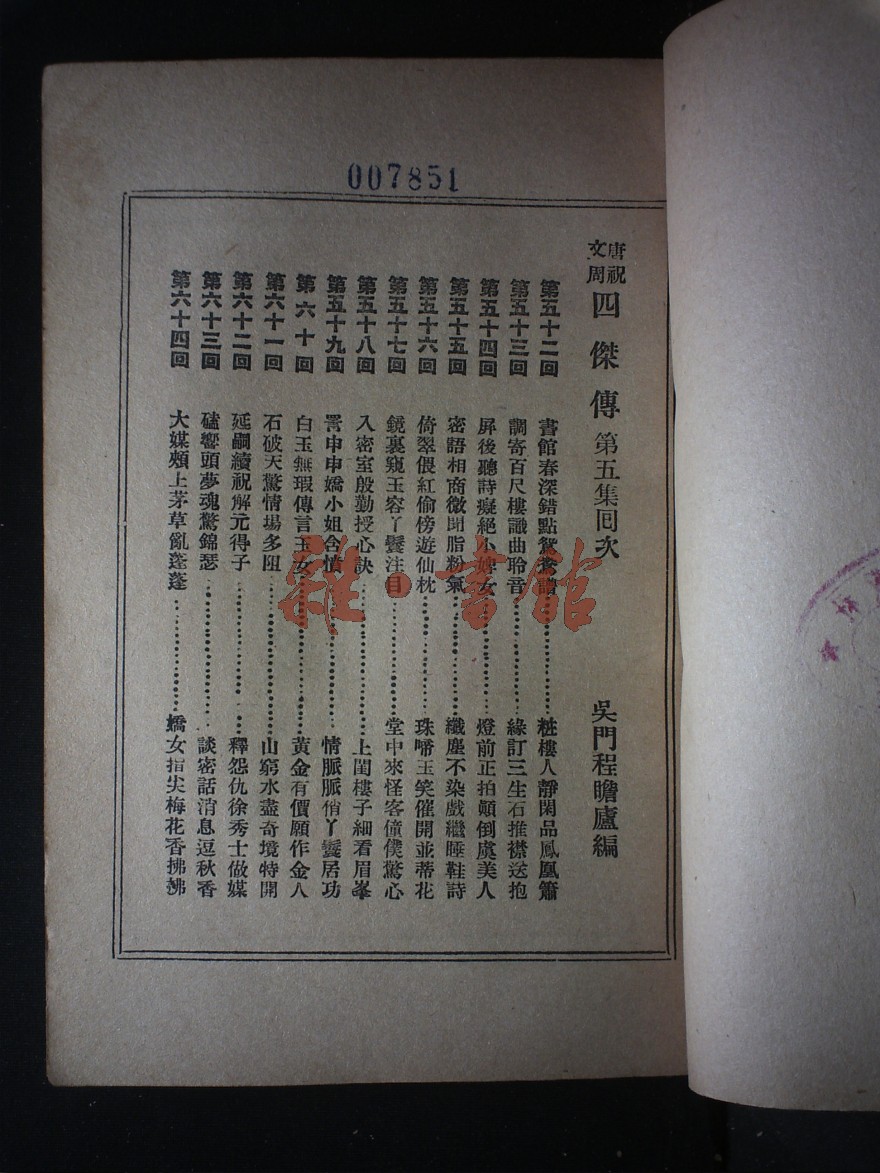 007851
唐祝文周 四傑傳 第五集回次
吳門程瞻廬編
第五十二回 書館春深錯點鴛鴦譜 粧樓人靜閑品鳳凰簫
第五十三回 調寄百尺樓識曲聆音 緣訂三生石推襟送抱
第五十四回 屏後聽詩癡絕小婢女 燈前正拍顛倒虞美人
第五十五回 密語相商微聞脂粉氣 纖塵不染戲繼睡鞋詩
第五十六回 倚翠偎紅偷傍遊仙枕 珠啼玉笑催開並蒂花
第五十七回 鏡裏窺玉容丫鬟注目 堂中來怪客僮僕驚心
第五十八回 入密室殷勤授心訣 上閨樓子細看眉峯
第五十九回 詈申申嬌小姐含憤 情脈脈俏丫鬟居功
第六十回 白玉無瑕傳言玉女 黃金有價願作金人
第六十一回 石破天驚情場多阻 山窮水盡奇境特開
第六十二回 延嗣續祝解元得子 釋怨仇徐秀士做媒
第六十三回 磕響頭夢魂驚錦瑟 談密話消息逗秋香
第六十四回 大媒頰上茅草亂蓬蓬 嬌女指尖梅花香拂拂
雜·書館